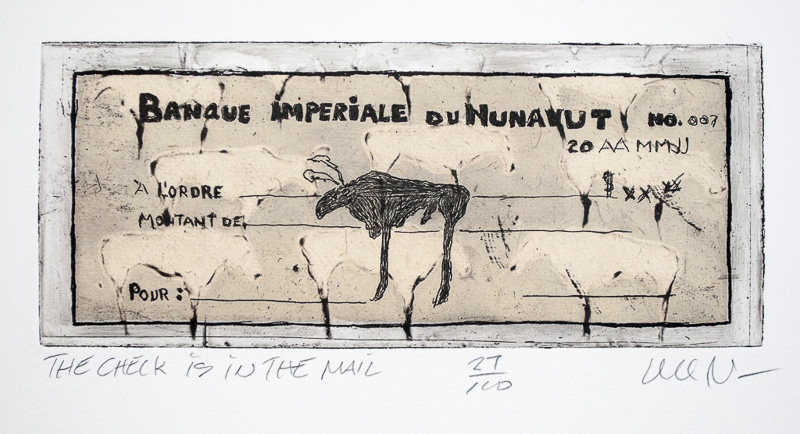 BANQUE IMPERIALE DU NUNAVUT NO. 007
20 AA MM JJ
À L'ORDRE $ XX XX
MONTANT DE
POUR :
THE CHECK IS IN THE MAIL 27/100